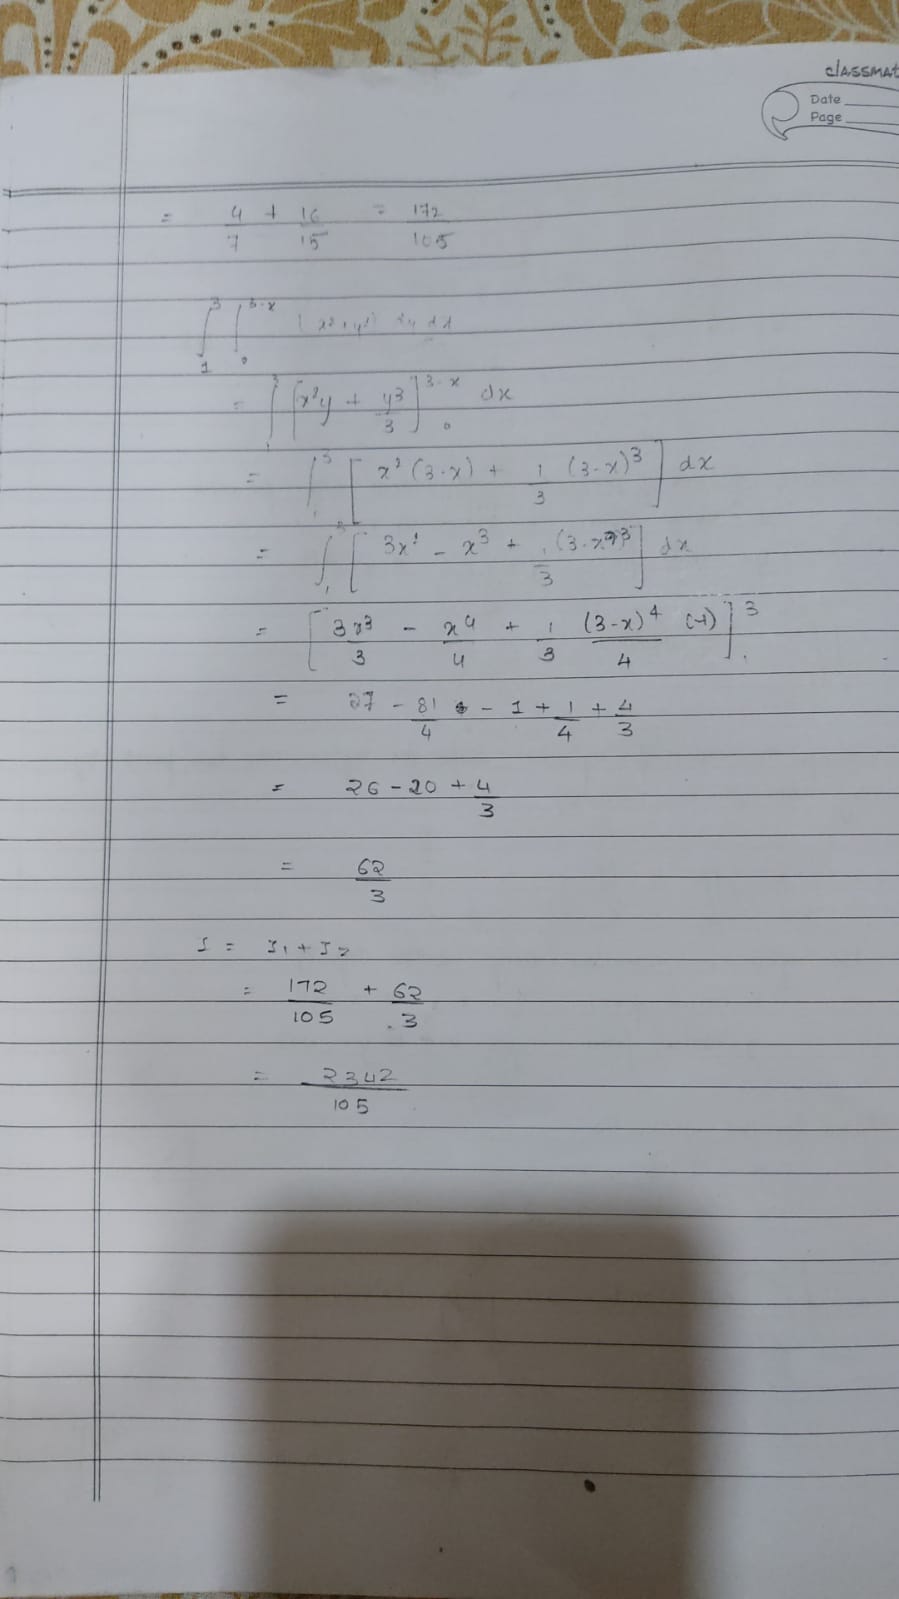 classmat
Date
Page
= 4/7 + 16/15 = 172/105
∫₁³ ∫₀^(3-x) (x²+y²) dy dx
= ∫₁³ [x²y + y³/3]₀^(3-x) dx
= ∫₁³ [x²(3-x) + 1/3 (3-x)³] dx
= ∫₁³ [3x² - x³ + 1/3 (3-x)³] dx
= [3x³/3 - x⁴/4 + 1/3 (3-x)⁴/4 (-1)]₁³
= 27 - 81/4 - 1 + 1/4 + 4/3
= 26 - 20 + 4/3
= 62/3
I = I₁ + I₂
= 172/105 + 62/3
= 2342/105